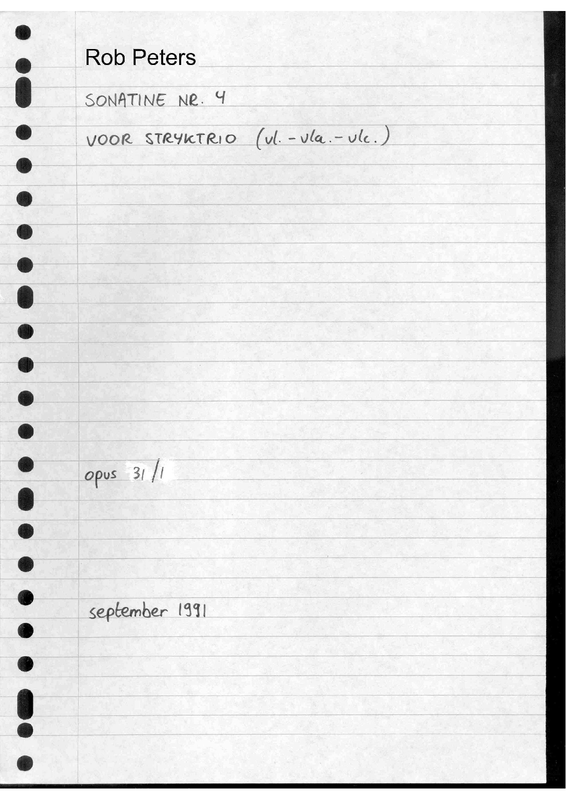 Rob Peters
SONATINE NR. 4
VOOR STRYKTRIO (vl. - vla. - vlc.)
opus 31/1
september 1991